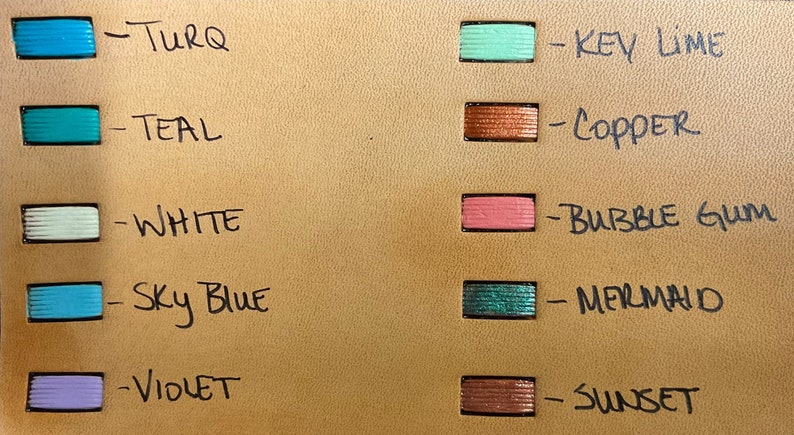 - TURQ
- TEAL
- WHITE
- SKY BLUE
- VIOLET
- KEY LIME
- COPPER
- BUBBLE GUM
- MERMAID
- SUNSET